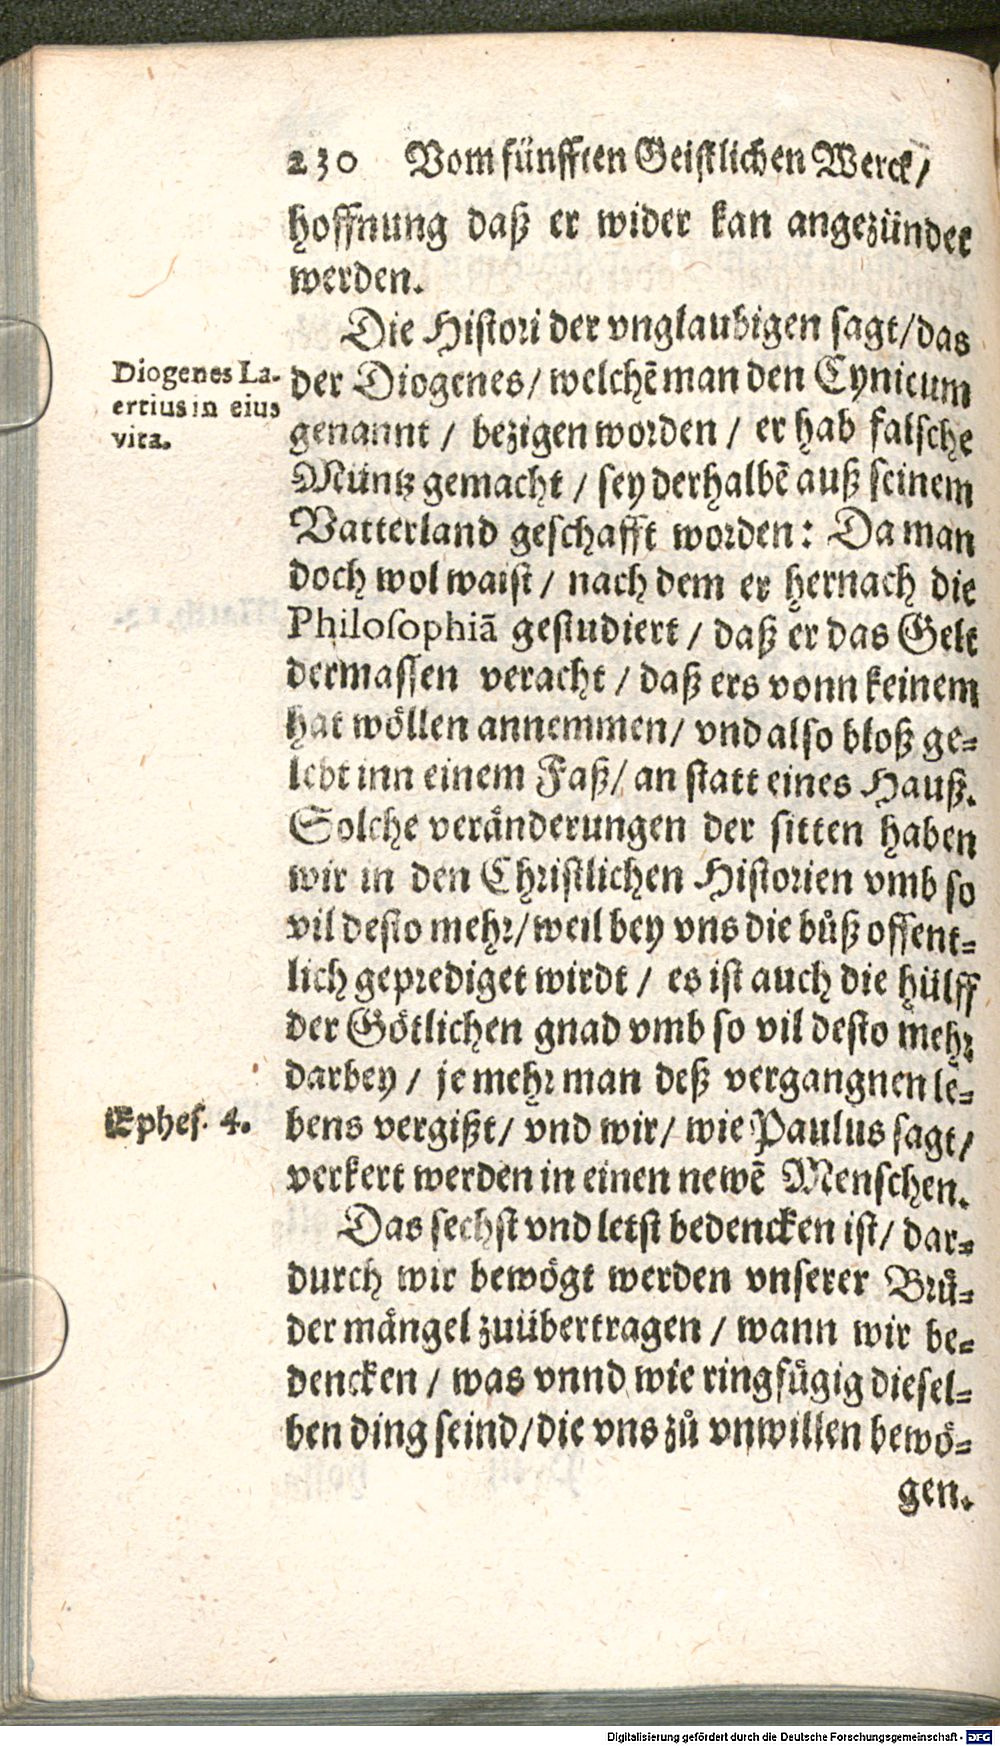 230 Vom fünfften Geistlichen Werck /
hoffnung daß er wider kan angezündet
werden.
Die Histori der vnglaubigen sagt / das
Diogenes La-
ertius in eius
vita.
der Diogenes / welchē man den Cynicum
genannt / bezigen worden / er hab falsche
Müntz gemacht / sey derhalbē auß seinem
Vatterland geschafft worden: Da man
doch wol waist / nach dem er hernach die
Philosophiā gestudiert / daß er das Gelt
dermassen veracht / daß ers vonn keinem
hat wöllen annemmen / vnd also bloß ge-
lebt inn einem Faß / an statt eines Hauß.
Solche veränderungen der sitten haben
wir in den Christlichen Historien vmb so
vil desto mehr / weil bey vns die bůß offent-
lich geprediget wirdt / es ist auch die hülff
der Götlichen gnad vmb so vil desto mehr
darbey / je mehr man deß vergangnen le-
Ephes. 4.
bens vergißt / vnd wir / wie Paulus sagt /
verkert werden in einen newē Menschen.
Das sechst vnd letst bedencken ist / dar-
durch wir bewögt werden vnserer Brů-
der mängel zuübertragen / wann wir be-
dencken / was vnnd wie ringfůgig diesel-
ben ding seind / die vns zů vnwillen bewö-
gen.
Digitalisierung gefördert durch die Deutsche Forschungsgemeinschaft - DFG